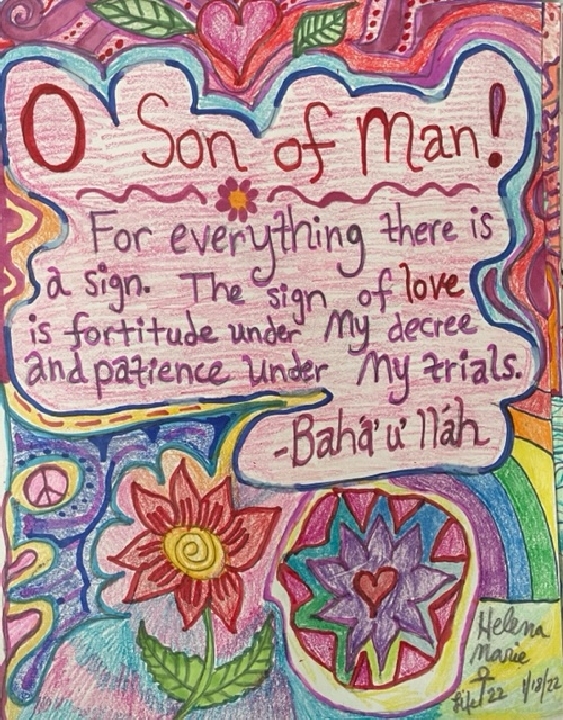 O Son of Man!
For everything there is
a sign. The sign of love
is fortitude under My decree
and patience under My trials.
-Bahá'u'lláh
Helena
Marie
'22 1/18/22